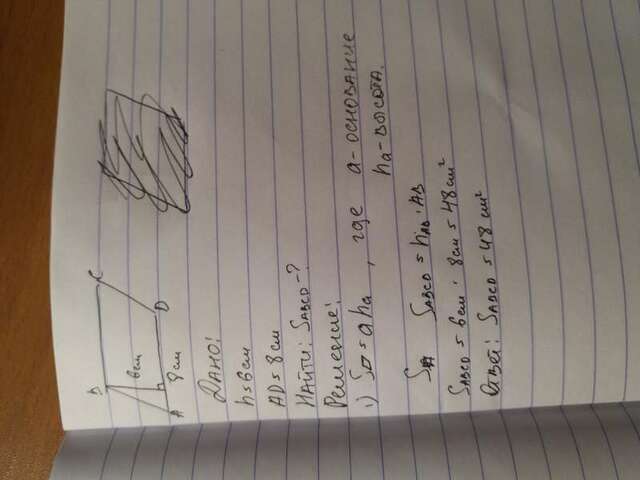 B C
6см
h
A 8см D
Дано:
h=6см
AD=8см
Найти: SABCD-?
Решение:
1) S▱=aha, где a-основание
ha-высота.
SABCD=hAD·AD
SABCD=6см·8см=48см²
Ответ: SABCD=48см²